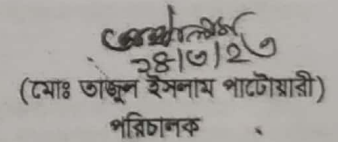 ২৪।৩।২৩
(মোঃ তাজুল ইসলাম পাটোয়ারী)
পরিচালক